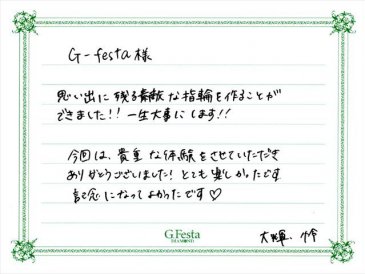 G-festa様
思い出に残る素敵な指輪を作ることが
できました!! 一生大事にします!!
今回は、貴重な体験をさせていただき
ありがとうございました! とても楽しかったです
記念になってよかったです♡
G.Festa
DIAMOND
大輝、怜